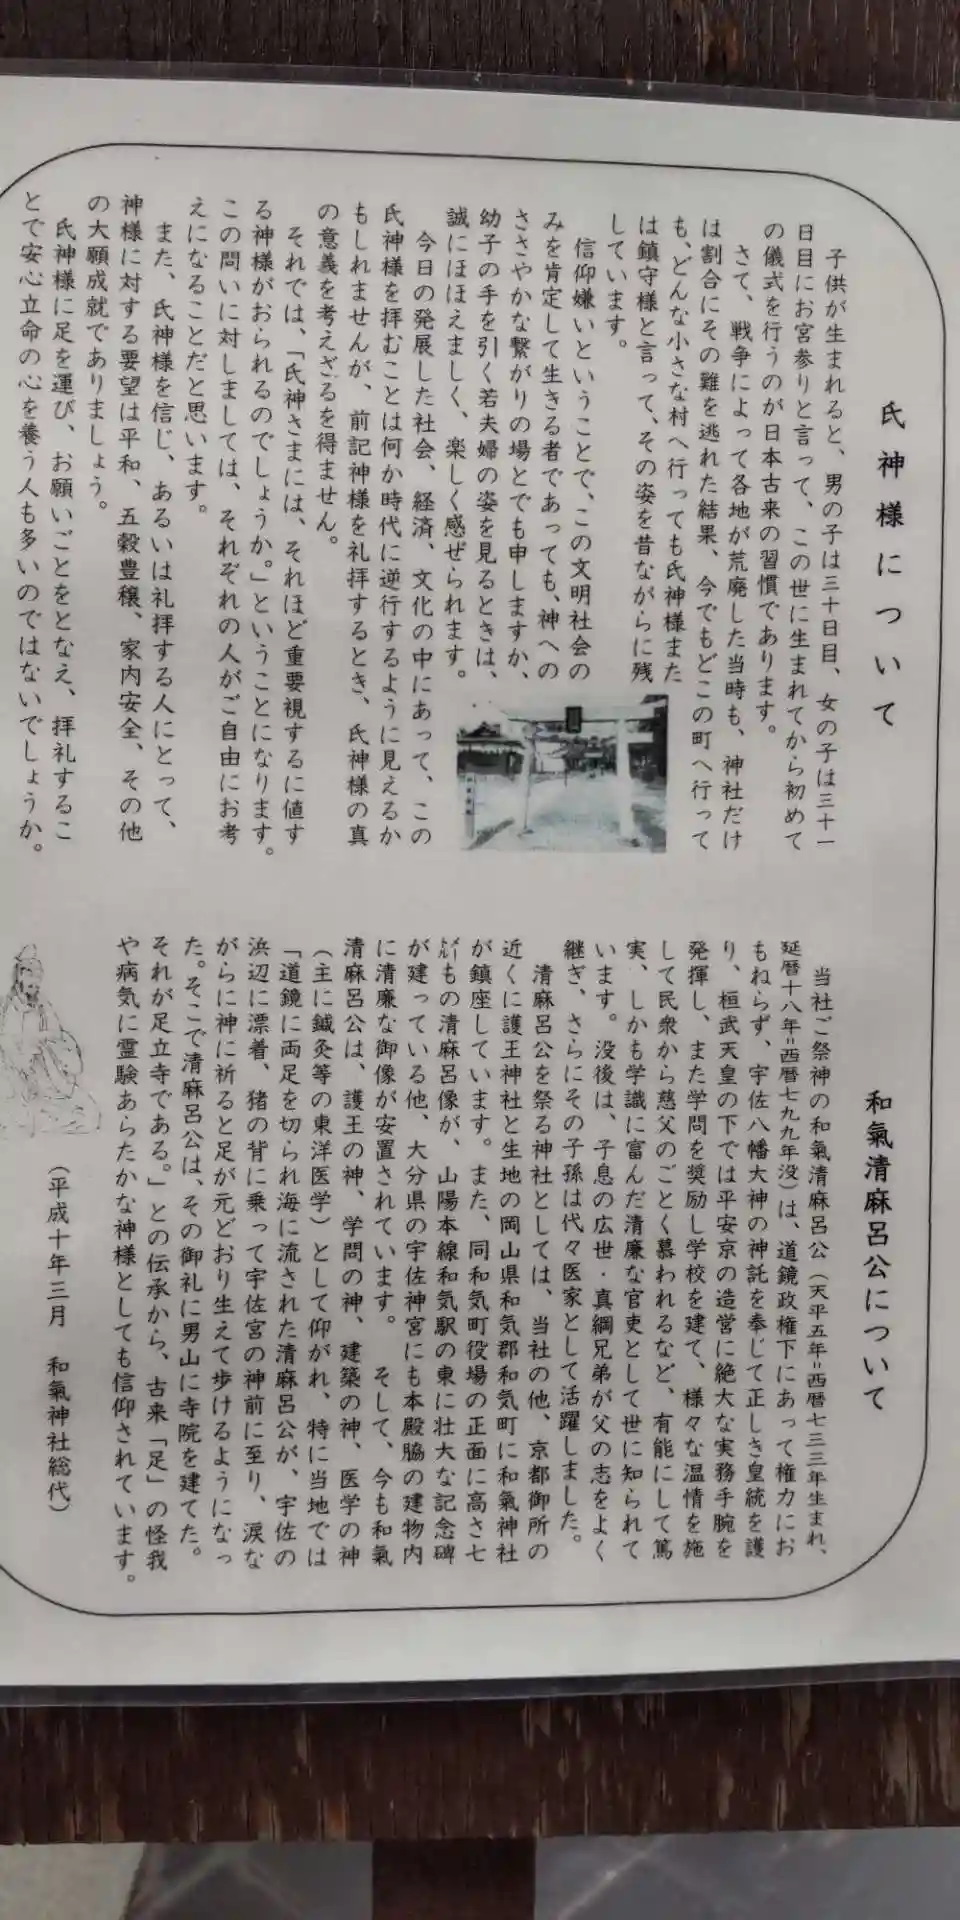 氏神様について
子供が生まれると、男の子は三十日目、女の子は三十一
日目にお宮参りと言って、この世に生まれてから初めて
の儀式を行うのが日本古来の習慣であります。
さて、戦争によって各地が荒廃した当時も、神社だけ
は割合にその難を逃れた結果、今でもどこの町へ行って
も、どんな小さな村へ行っても氏神様また
は鎮守様と言って、その姿を昔ながらに残
しています。
信仰嫌いということで、この文明社会の
みを肯定して生きる者であっても、神への
ささやかな繋がりの場とでも申しますか、
幼子の手を引く若夫婦の姿を見るときは、
誠にほほえましく、楽しく感ぜられます。
今日の発展した社会、経済、文化の中にあって、この
氏神様を拝むことは何か時代に逆行するように見えるか
もしれませんが、前記神様を礼拝するとき、氏神様の真
の意義を考えざるを得ません。
それでは、「氏神さまには、それほど重要視するに値す
る神様がおられるのでしょうか。」ということになります。
この問いに対しましては、それぞれの人がご自由にお考
えになることだと思います。
また、氏神様を信じ、あるいは礼拝する人にとって、
神様に対する要望は平和、五穀豊穣、家内安全、その他
の大願成就でありましょう。
氏神様に足を運び、お願いごとをとなえ、拝礼するこ
とで安心立命の心を養う人も多いのではないでしょうか。
和氣清麻呂公について
当社ご祭神の和氣清麻呂公（天平五年＝西暦七三三年生まれ、
延暦十八年＝西暦七九九年没）は、道鏡政権下にあって権力にお
もねらず、宇佐八幡大神の神託を奉じて正しき皇統を護
り、桓武天皇の下では平安京の造営に絶大な実務手腕を
発揮し、また学問を奨励し学校を建て、様々な温情を施
して民衆から慈父のごとく慕われるなど、有能にして篤
実、しかも学識に富んだ清廉な官吏として世に知られて
います。没後は、子息の広世・真綱兄弟が父の志をよく
継ぎ、さらにその子孫は代々医家として活躍しました。
清麻呂公を祭る神社としては、当社の他、京都御所の
近くに護王神社と生地の岡山県和気郡和気町に和氣神社
が鎮座しています。また、同和気町役場の正面に高さ七
メートルもの清麻呂像が、山陽本線和気駅の東に壮大な記念碑
が建っている他、大分県の宇佐神宮にも本殿脇の建物内
に清廉な御像が安置されています。 そして、今も和氣
清麻呂公は、護王の神、学問の神、建築の神、医学の神
（主に鍼灸等の東洋医学）として仰がれ、特に当地では
「道鏡に両足を切られ海に流された清麻呂公が、宇佐の
浜辺に漂着、猪の背に乗って宇佐宮の神前に至り、涙な
がらに神に祈ると足が元どおり生えて歩けるようになっ
た。そこで清麻呂公は、その御礼に男山に寺院を建てた。
それが足立寺である。」との伝承から、古来「足」の怪我
や病気に霊験あらたかな神様としても信仰されています。
（平成十年三月 和氣神社総代）